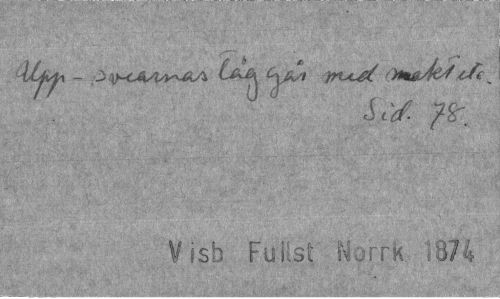 Upp-svearnas tåg går med makt etc.
Sid. 78.
Visb Fullst Norrk 1874